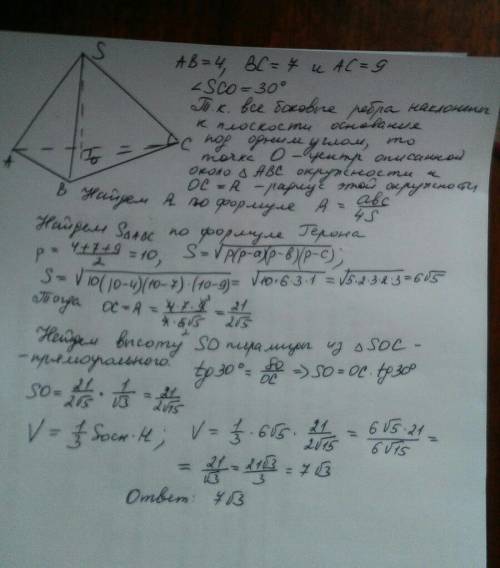 S
A
B
O
C
AB=4, BC=7 и AC=9
∠SCO=30°
Т.к. все боковые ребра наклонены
к плоскости основания
под одним углом, то
точка O - центр описанной
около △ABC окружности и
OC=R - радиус этой окружности
Найдем R по формуле R = abc/4S
Найдем S△ABC по формуле Герона
p = (4+7+9)/2 = 10, S=√(p(p-a)(p-b)(p-c));
S=√(10(10-4)(10-7)·(10-9))=√(10·6·3·1)=√(5·2·3·2·3)=6√5
Тогда OC=R= (4·7·9³)/(4·6₂√5) = 21/(2√5)
Найдем высоту SO пирамиды из △SOC -
- прямоугольного. tg30°= SO/OC ⇒ SO=OC·tg30°
SO= 21/(2√5) · 1/√3 = 21/(2√15)
V= 1/3 Sосн·H; V= 1/3 · 6√5 · 21/(2√15) = (6√5·21)/(6√15) =
= 21/√3 = 21√3/3 = 7√3
Ответ: 7√3